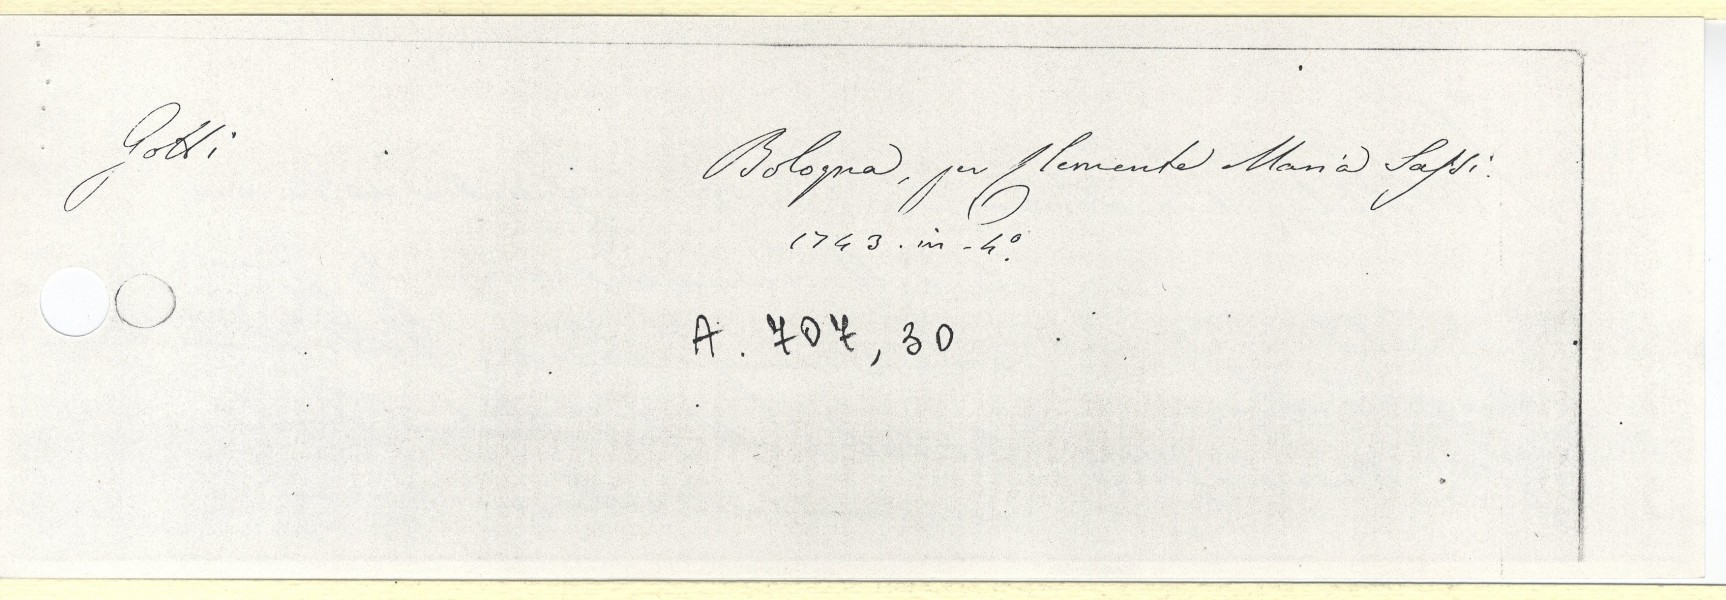 Gotti
Bologna, per Clemente Maria Sassi.
1743. in-4º.
A. 707, 30